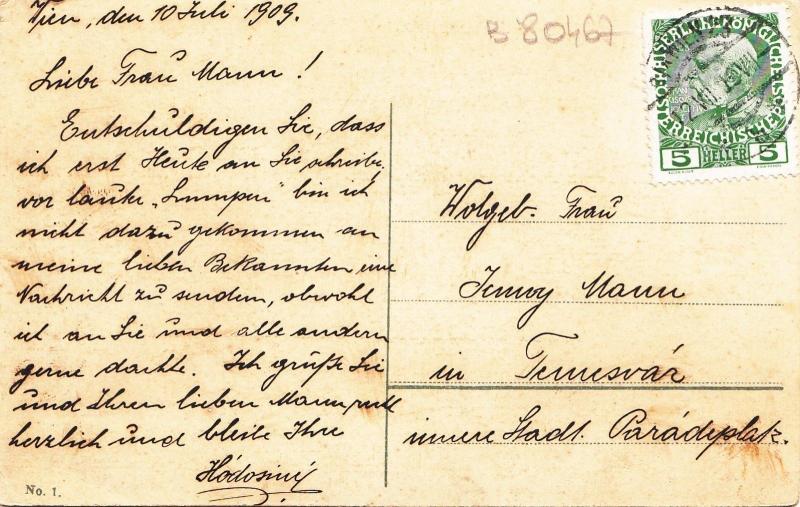 Wien, den 10 Juli 1909.
Liebe Frau Mann!
Entschuldigen Sie, dass
ich erst Heute an Sie schreibe,
vor lauter „Lumpen" bin ich
nicht dazu gekommen an
meine lieben Bekannten eine
Nachricht zu senden, obwohl
ich an Sie und alle andern
gerne dachte. Ich grüße Sie
und Ihren lieben Mann recht
herzlich und bleibe Ihre
No. 1.
B 80467
5 HELLER 5
Wolgeb. Frau
Jenny Mann
in Temesvár
innere Stadt. Parádeplatz.